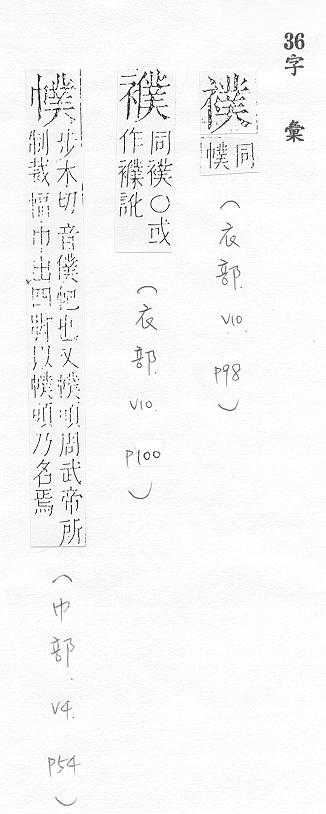 36字彙
襆
同
幞
（衣部. V10. P98）
襥
同襆○或
作襥訛
（衣部. V10. P100）
幞
步木切音僕帊也又幞頭周武帝所
制裁幅巾出四脚以幞頭乃名焉
（巾部. V4. P54）